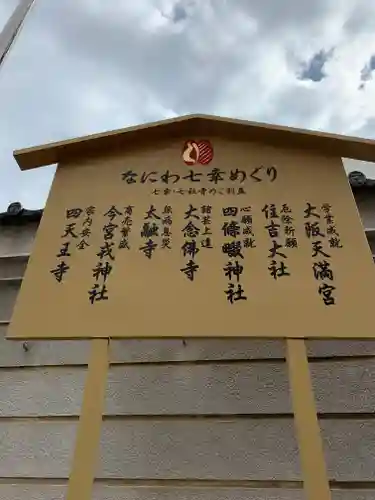 なにわ七幸めぐり
学業成就
大阪天満宮
厄除祈願
住吉大社
心願成就
四條畷神社
諸芸上達
大念佛寺
無病息災
太融寺
商売繁盛
今宮戎神社
家内安全
四天王寺